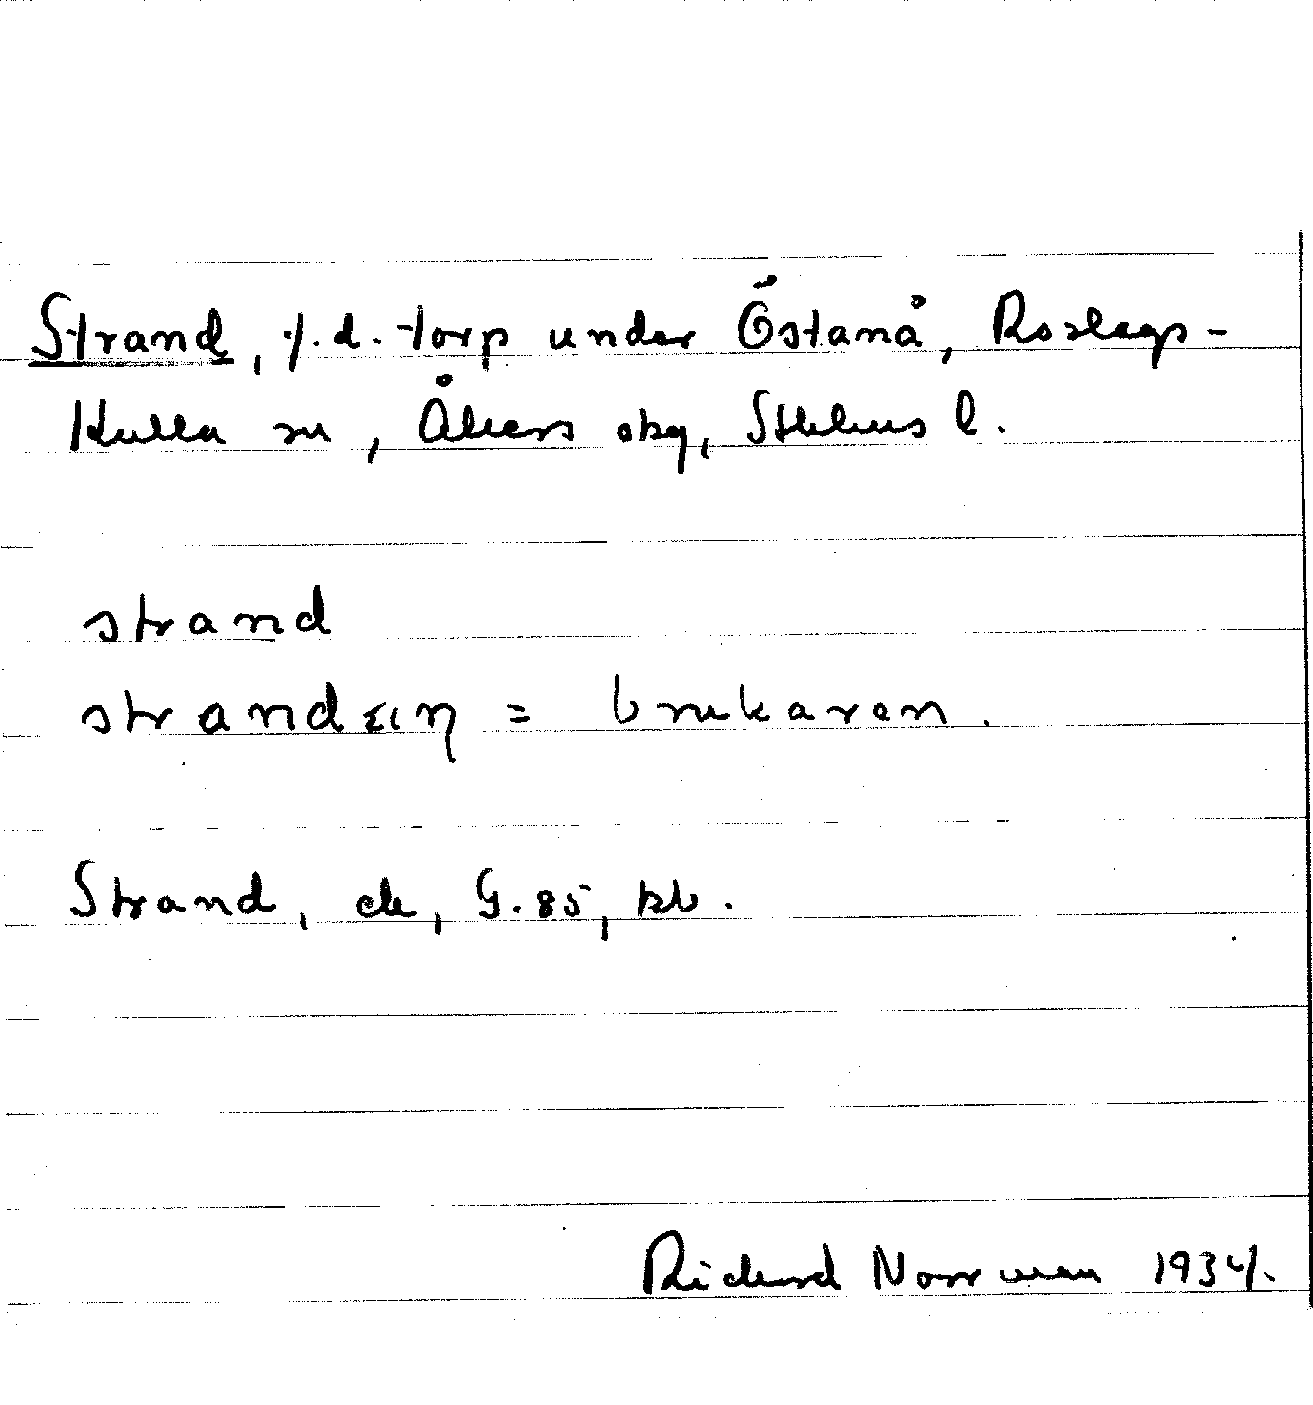 Strand, f.d. torp under Östanå, Roslags-
Kulla sn, Åkers skg, Sthlms l.
strand
strand = brukaren.
Strand, de, G.85, kb.
Richard Norrman 1934.